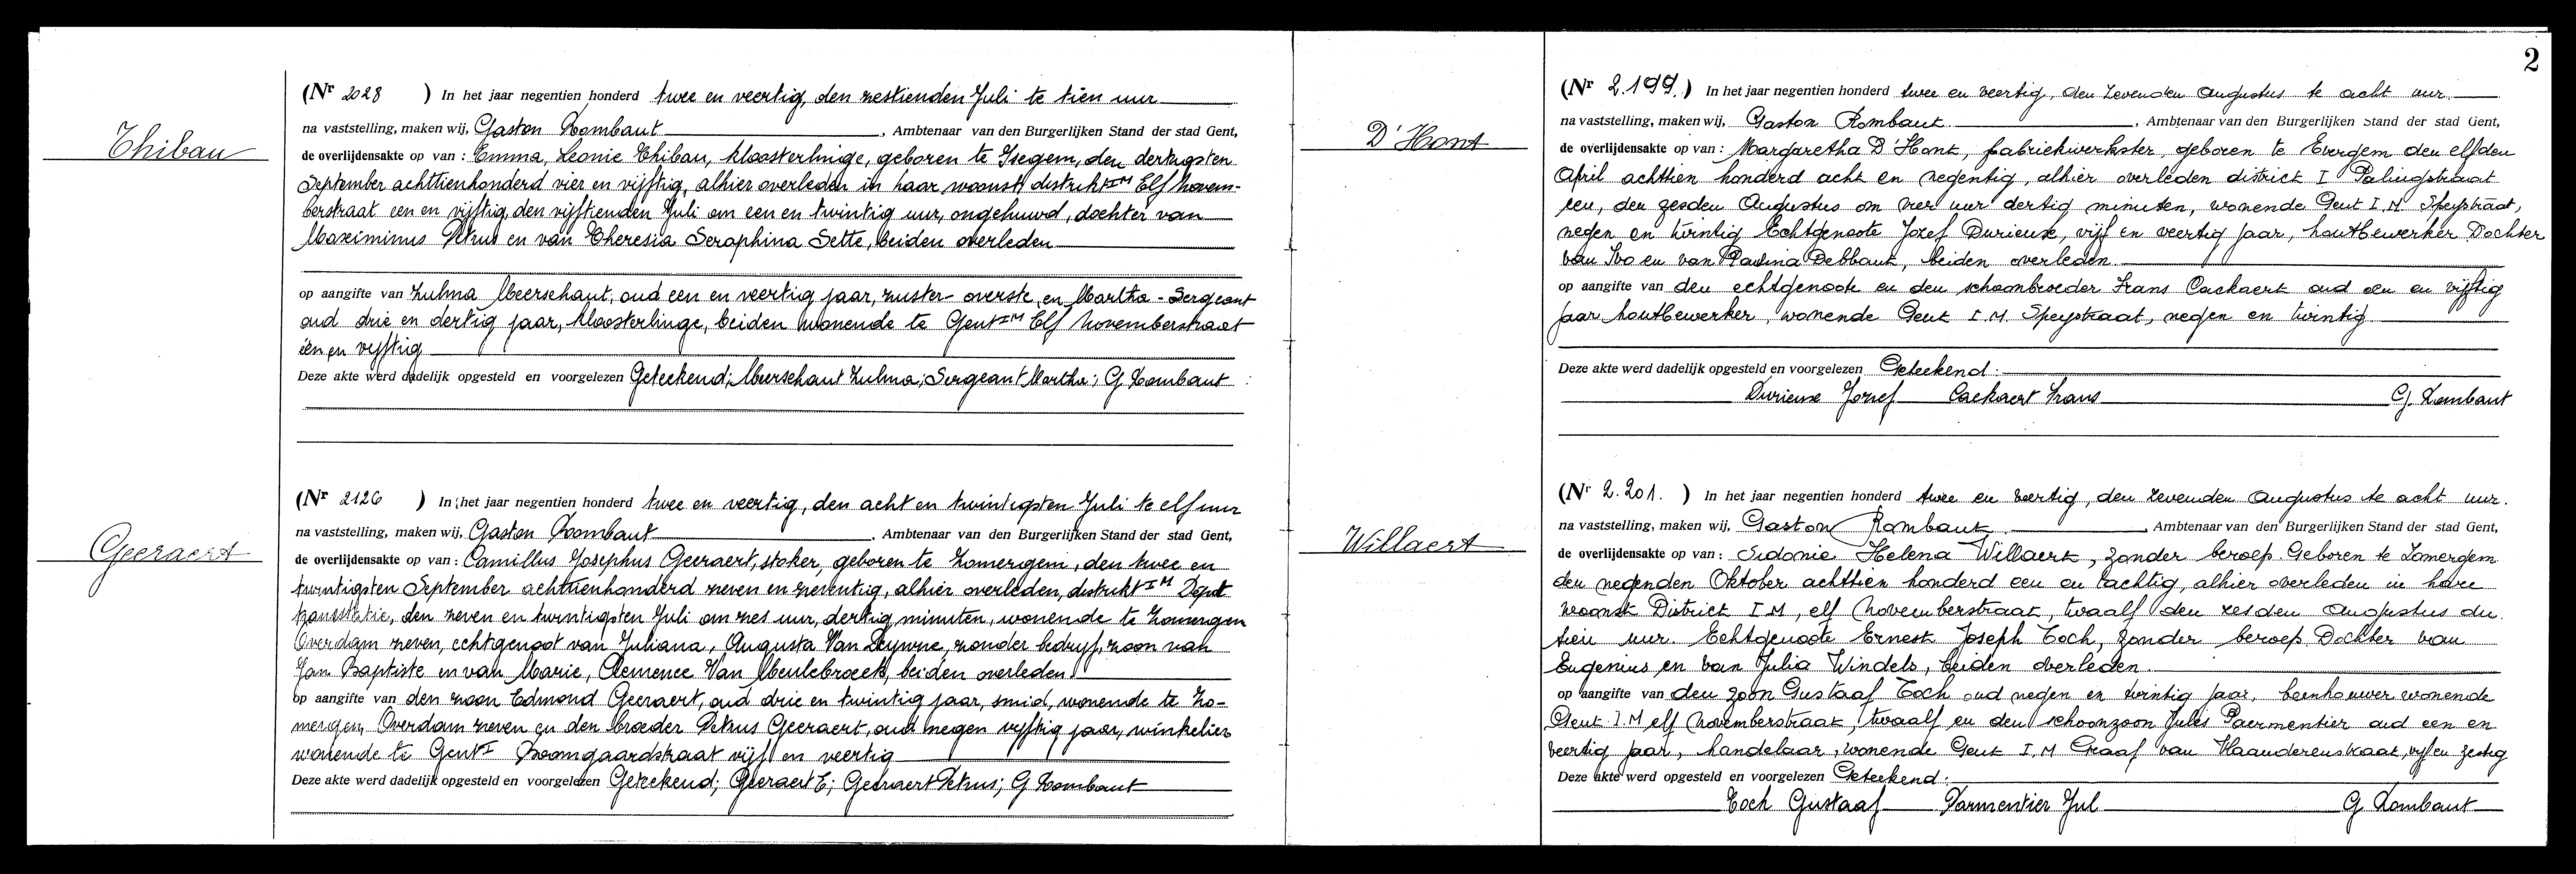 Thibau
(Nr 2028 ) In het jaar negentien honderd twee en veertig, den zestienden Juli te tien uur
na vaststelling, maken wij, Gaston Rombaut, Ambtenaar van den Burgerlijken Stand der stad Gent,
de overlijdensakte op van : Emma, Leonie Thibau, kloosterlinge, geboren te Isegem, den dertigsten
September achttienhonderd vier en vijftig, alhier overleden in haar woonst, distrikt I M Elf Novem-
berstraat een en vijftig, den vijftienden Juli om een en twintig uur, ongehuwd, dochter van
Maximinus Petrus en van Theresia Seraphina Sette, beiden overleden
op aangifte van Zulma Meerschaut, oud een en veertig jaar, zuster-overste, en Martha - Sergeant
oud drie en dertig jaar, kloosterlinge, beiden wonende te Gent I M Elf Novemberstraat
één en vijftig
Deze akte werd dadelijk opgesteld en voorgelezen Geteekend; Meerschaut Zulma; Sergeant Martha; G Rombaut
Geeraert
(Nr 2126 ) In het jaar negentien honderd twee en veertig, den acht en twintigsten Juli te elf uur
na vaststelling, maken wij, Gaston Rombaut, Ambtenaar van den Burgerlijken Stand der stad Gent,
de overlijdensakte op van : Camillus Josephus Geeraert, stoker, geboren te Zomergem, den twee en
twintigsten September achttienhonderd zeven en zeventig, alhier overleden, distrikt I M
den zeven en twintigsten Juli om zes uur, dertig minuten, wonende te Zomergem
Overdam zeven, echtgenoot van Juliana, Augusta Van, zonder bedrijf, zoon van
Jan Baptiste en van Marie, Clemence Van Meulebroeck, beiden overleden
op aangifte van den zoon Edmond Geeraert, oud drie en twintig jaar, smid, wonende te Zo-
mergem, Overdam zeven en den broeder Petrus Geeraert, oud negen vijftig jaar, winkelier
wonende te Gent I Boomgaardstraat vijf en veertig
Deze akte werd dadelijk opgesteld en voorgelezen Geteekend; Geeraert E; Geeraert Petrus; G Rombaut
2
D'Hont
(Nr 2.199.) In het jaar negentien honderd twee en veertig, den zevenden Augustus te acht uur.
na vaststelling, maken wij, Gaston Rombaut, Ambtenaar van den Burgerlijken Stand der stad Gent,
de overlijdensakte op van : Margaretha D'Hont, fabriekwerkster, geboren te Evergem den elfden
April achttien honderd acht en negentig, alhier overleden district I Palingstraat
een, den zesden Augustus om vier uur dertig minuten, wonende Gent I.M Speystraat,
negen en twintig Echtgenoote Jozef Durieux, vijf en veertig jaar, houtbewerker Dochter
van Ivo en van Paulina Debbaut, beiden overleden.
op aangifte van den echtgenoot en den schoonbroeder Frans Cackaert oud een en vijftig
jaar houtbewerker, wonende Gent I.M. Speystraat, negen en twintig
Deze akte werd dadelijk opgesteld en voorgelezen Geteekend:
Durieux Jozef Cackaert Frans G. Rombaut
Willaert
(Nr 2.201. ) In het jaar negentien honderd twee en veertig, den zevenden Augustus te acht uur.
na vaststelling, maken wij, Gaston Rombaut, Ambtenaar van den Burgerlijken Stand der stad Gent,
de overlijdensakte op van : Sidonie Helena Willaert, zonder beroep. Geboren te Zomergem
den negenden Oktober achttien honderd een en tachtig, alhier overleden in hare
woonst District I.M, elf Novemberstraat, twaalf den zesden Augustus du
tien uur. Echtgenoote Ernest Joseph Toch, zonder beroep. Dochter van
Eugenius en van Julia Windels, beiden overleden.
op aangifte van den zoon Gustaaf Toch oud negen en twintig jaar, beenhouwer wonende
Gent I.M elf Novemberstraat, twaalf en den schoonzoon Jules Paermentier oud een en
veertig jaar, handelaar, wonende Gent I.M Graaf van Vlaanderenstraat, vijf en zestig
Deze akte werd opgesteld en voorgelezen Geteekend:
Toch Gustaaf Parmentier Jul G Rombaut